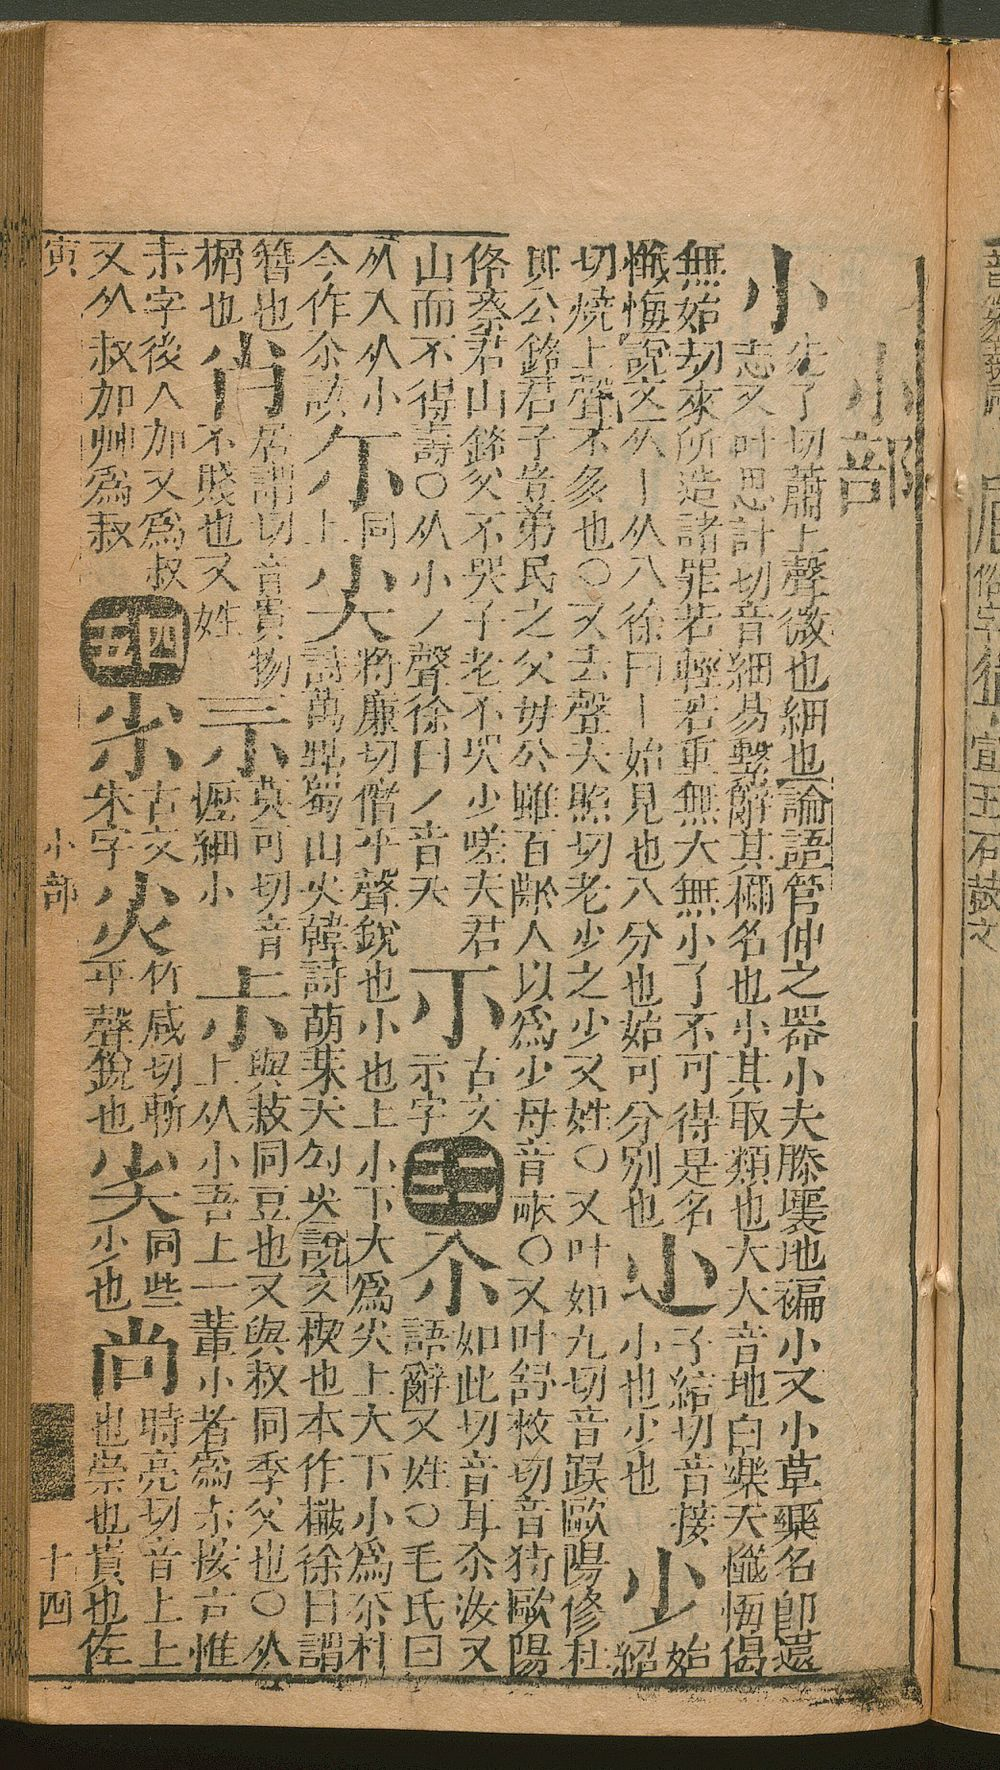 小部
小
先了切蕭上聲微也細也論語管仲之器小夫滕壤地褊小又小草藥名卽遠
志又叶思計切音細易繫辭其稱名也小其取類也大大音地白樂天懺悔偈
無始劫來所造諸罪若輕若重無大無小了不可得是名
懺悔說文从亅从八徐曰亅始見也八分也始可分別也
子結切音接
小也少也
少
始
紹
切燒上聲不多也○又去聲失照切老少之少又姓○又叶如九切音蹂歐陽修杜
公銘君子豈弟民之父母公雖百齡人以爲少母音畝○又叶舒救切音狩歐陽
脩蔡君山銘父不哭子老不哭少嗟夫君
山而不得壽○从小丿聲徐曰丿音夭
古文
示字
尒
如此切音耳尒汝又
語辭又姓○毛氏曰
从入从小
今作尒誤
尒
同
上
尖
將廉切僭平聲銳也小也上小下大爲尖上大下小爲尒杜
詩萬點蜀山尖韓詩萌芽夭勾尖說文楔也本作櫼徐曰謂
簪也
楔也
居謂切音貴物
不賤也又姓
莫可切音
麼細小
尗
與菽同豆也又與叔同季父也○从
上从小吾上一輩小者爲尗按古惟
尗字後人加又爲叔
又从叔加艸爲菽
四
五
古文
朱字
竹咸切斬
平聲銳也
同些
少也
尚
時亮切音上上
也崇也貴也佐
寅
小部
十四